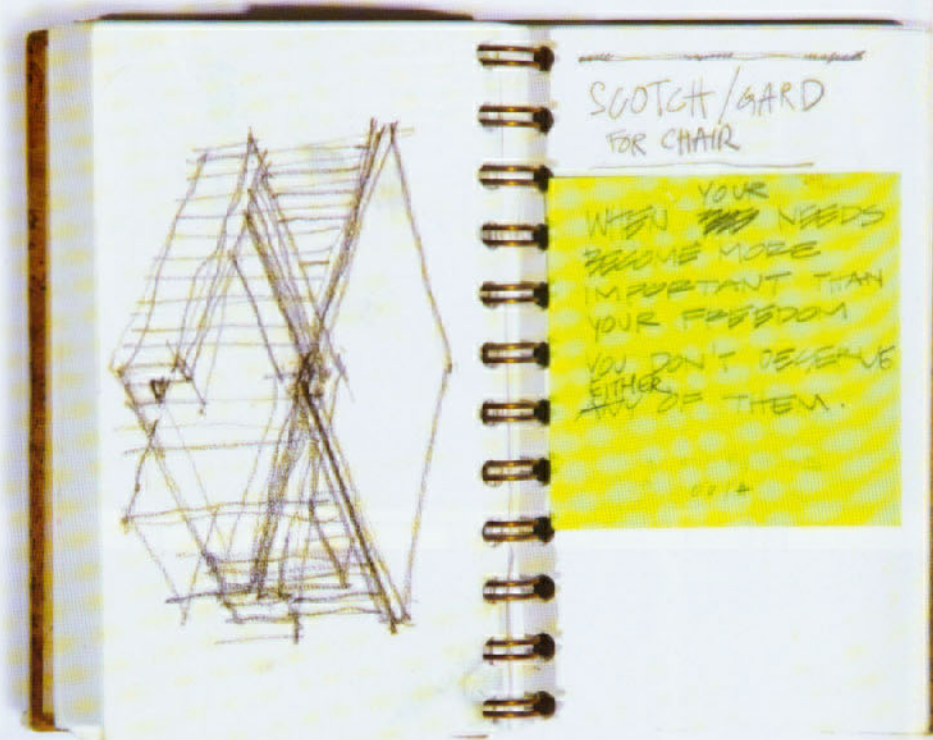 SCOTCH/GARD
FOR CHAIR
YOUR
WHEN NEEDS
BECOME MORE
IMPORTANT THAN
YOUR FREEDOM
YOU DON'T DESERVE
EITHER
OF THEM.